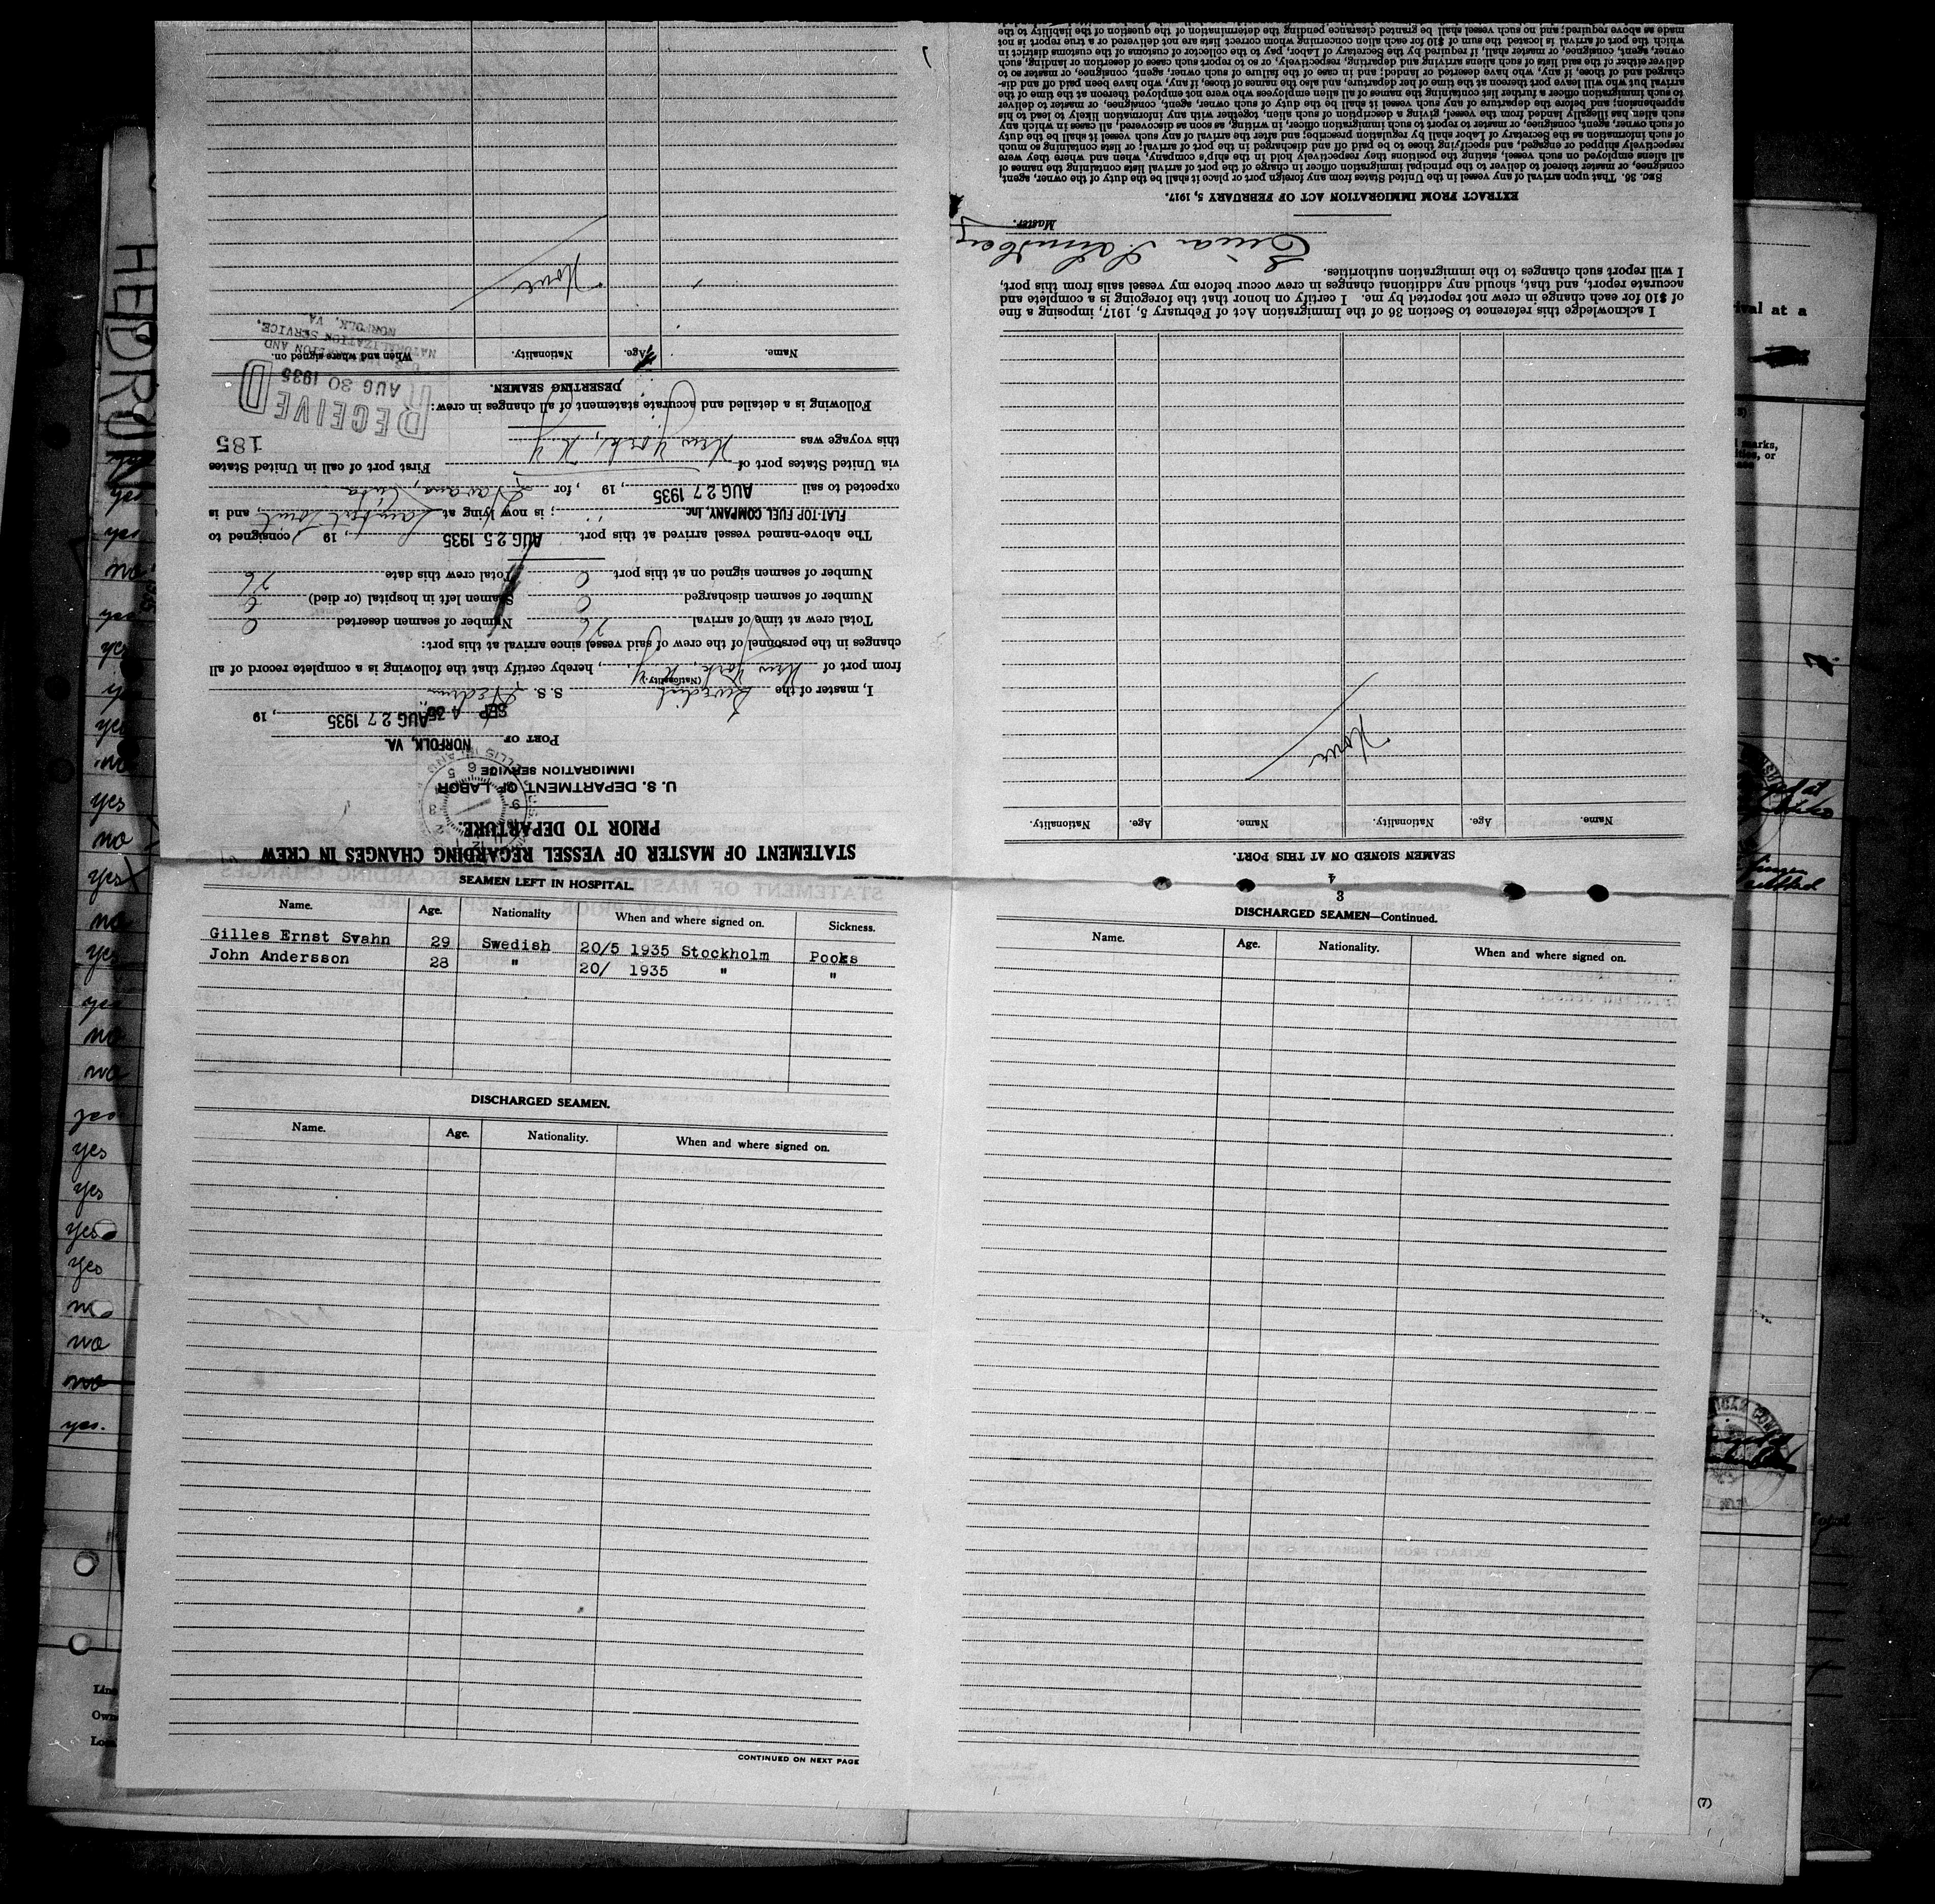 STATEMENT OF MASTER OF VESSEL REGARDING CHANGES IN CREW
PRIOR TO DEPARTURE.
U. S. DEPARTMENT OF LABOR
IMMIGRATION SERVICE
PORT OF NORFOLK, VA.
AUG 27 1935, 19
I, master of the Swedish S. S.
(Nationality.)
from port of New York, N.Y., hereby certify that the following is a complete record of all
changes in the personnel of the crew of said vessel since arrival at this port:
Total crew at time of arrival 26 Number of seamen deserted 0
Number of seamen discharged 0 Seamen left in hospital (or died) 0
Number of seamen signed on at this port 0 Total crew this date 26
The above-named vessel arrived at this port AUG 25 1935, 19 , consigned to
FLAT-TOP FUEL COMPANY, Inc. ; is now lying at Lambert Point, and is
expected to sail AUG 27 1935, 19 , for Havana, Cuba
via United States port of First port of call in United States
this voyage was New York, N.Y. 185
Following is a detailed and accurate statement of all changes in crew:
RECEIVED
AUG 30 1935
NATURALIZATION SERVICE,
NORFOLK, VA.
DESERTING SEAMEN.
Name. Age. Nationality. When and where signed on.
None
SEAMEN SIGNED ON AT THIS PORT.
Name. Age. Nationality. Name. Age. Nationality.
None
I acknowledge this reference to Section 36 of the Immigration Act of February 5, 1917, imposing a fine
of $10 for each change in crew not reported by me. I certify on honor that the foregoing is a complete and
accurate report, and that, should any additional changes in crew occur before my vessel sails from this port,
I will report such changes to the immigration authorities.
Master.
EXTRACT FROM IMMIGRATION ACT OF FEBRUARY 5, 1917.
SEC. 36. That upon arrival of any vessel in the United States from any foreign port or place it shall be the duty of the owner, agent,
consignee, or master thereof to deliver to the principal immigration officer in charge of the port of arrival lists containing the names of
all aliens employed on such vessel, stating the positions they respectively hold in the ship's company, when and where they were
respectively shipped or engaged, and specifying those to be paid off and discharged in the port of arrival; or lists containing so much
of such information as the Secretary of Labor shall by regulation prescribe; and after the arrival of any such vessel it shall be the duty
of such owner, agent, consignee, or master to report to such immigration officer, in writing, as soon as discovered, all cases in which any
such alien has illegally landed from the vessel, giving a description of such alien, together with any information likely to lead to his
apprehension; and before the departure of any such vessel it shall be the duty of such owner, agent, consignee, or master to deliver
to such immigration officer a further list containing the names of all alien employees who were not employed thereon at the time of the
arrival but who will leave port thereon at the time of her departure, and also the names of those, if any, who have been paid off and dis-
charged and of those, if any, who have deserted or landed; and in case of the failure of such owner, agent, consignee, or master so to
deliver either of the said lists of such aliens arriving and departing, respectively, or so to report such cases of desertion or landing, such
owner, agent, consignee, or master shall, if required by the Secretary of Labor, pay to the collector of customs of the customs district in
which the port of arrival is located the sum of $10 for each alien concerning whom correct lists are not delivered or a true report is not
made as above required; and no such vessel shall be granted clearance pending the determination of the question of the liability to the
SEAMEN LEFT IN HOSPITAL.
Name. Age. Nationality When and where signed on. Sickness.
Gilles Ernst Svahn 29 Swedish 20/5 1935 Stockholm Pooks
John Andersson 28 " 20/ 1935 " "
DISCHARGED SEAMEN.
Name. Age. Nationality. When and where signed on.
CONTINUED ON NEXT PAGE
4
3
DISCHARGED SEAMEN—Continued.
Name. Age. Nationality. When and where signed on.
(7)